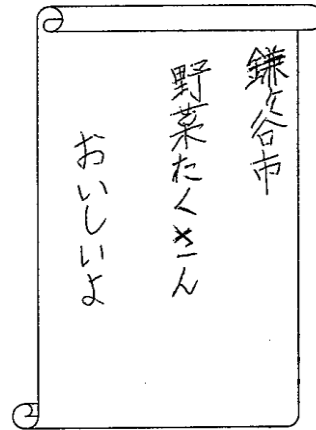 鎌ケ谷市
野菜たくさん
おいしいよ